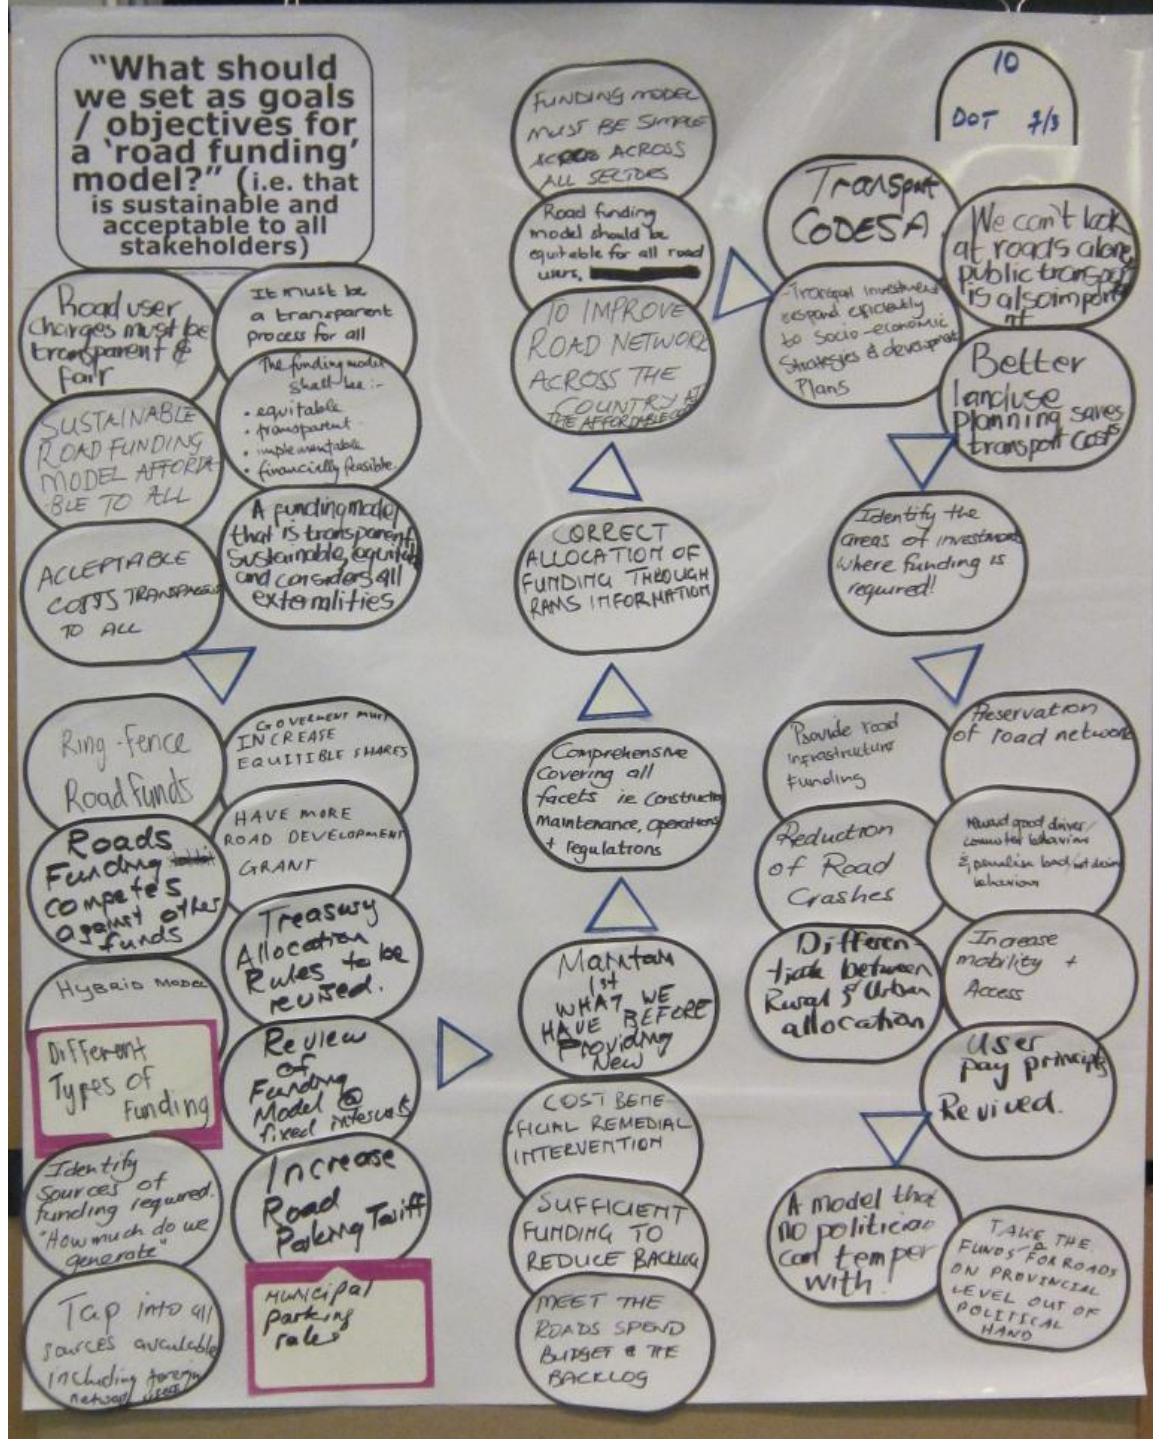 "What should
we set as goals
/ objectives for
a 'road funding'
model?" (i.e. that
is sustainable and
acceptable to all
stakeholders)
Road user
charges must be
transparent &
fair
It must be
a transparent
process for all
SUSTAINABLE
ROAD FUNDING
MODEL AFFORDA-
BLE TO ALL
The funding model
shall be :-
• equitable
• transparent
• implementable
• financially feasible.
ACCEPTABLE
COSTS TRANSPARENT
TO ALL
A funding model
that is transparent,
sustainable, equitable
and considers all
externalities
Ring-fence
Road funds
GOVERMENT MUST
INCREASE
EQUITIBLE SHARES
Roads
Funding
competes
against other
funds
HAVE MORE
ROAD DEVELOPMENT
GRANT
Treasury
Allocation
Rules to be
revised.
HYBRID MODEL
Different
Types of
Funding
Review
of
Funding
Model @
fixed intervals
Identify
sources of
funding required.
"How much do we
generate"
Increase
Road
Parking Tariff
Tap into all
sources available
including foreign
network users
Municipal
parking
rates
FUNDING MODEL
MUST BE SIMPLE
ACROSS
ALL SECTORS
Road funding
model should be
equitable for all road
users,
TO IMPROVE
ROAD NETWORK
ACROSS THE
COUNTRY AT
THE AFFORDABLE
CORRECT
ALLOCATION OF
FUNDING THROUGH
RAMS INFORMATION
Comprehensive
Covering all
facets ie Construction
Maintenance, operations
+ regulations
Maintain
1st
WHAT WE
HAVE BEFORE
Providing
New
COST BENE-
FICIAL REMEDIAL
INTERVENTION
SUFFICIENT
FUNDING TO
REDUCE BACKLOG
MEET THE
ROADS SPEND
BUDGET & THE
BACKLOG
10
DOT 7/3
Transport
CODESA
We can't look
at roads alone,
public transport
is also import
nt
-Transport investment
respond efficiently
to socio-economic
Strategies & development
Plans
Better
landuse
planning saves
transport costs
Identify the
areas of investment
where funding is
required!
Provide road
infrastructure
Funding
Preservation
of road network
Reduction
of Road
Crashes
Reward good driver/
commuter behaviour
& penalise bad
behaviour
Differen-
tiate between
Rural & Urban
allocation
Increase
mobility +
Access
User
pay principle
Revived.
A model that
no politician
can temper
with.
TAKE THE
FUNDS FOR ROADS
ON PROVINCIAL
LEVEL OUT OF
POLITICAL
HAND